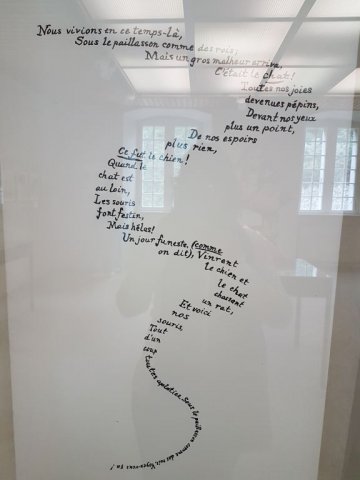 Nous vivions en ce temps-là,
Sous le paillasson comme des rois;
Mais un gros malheur arriva,
C'était le chat!
Toutes nos joies
devenues pépins,
Devant nos yeux
plus un point,
De nos espoirs
plus rien,
Ce fut le chien!
Quand le
chat est
au loin,
Les souris
font festin,
Mais hélas!
Un jour funeste, (comme
on dit), Vinrent
le chien et
le chat
chassant
un rat,
Et voici
nos
souris
Tout
d'un
coup
toutes aplaties, Sous le paillasson comme des rois, Voyez-vous ça!